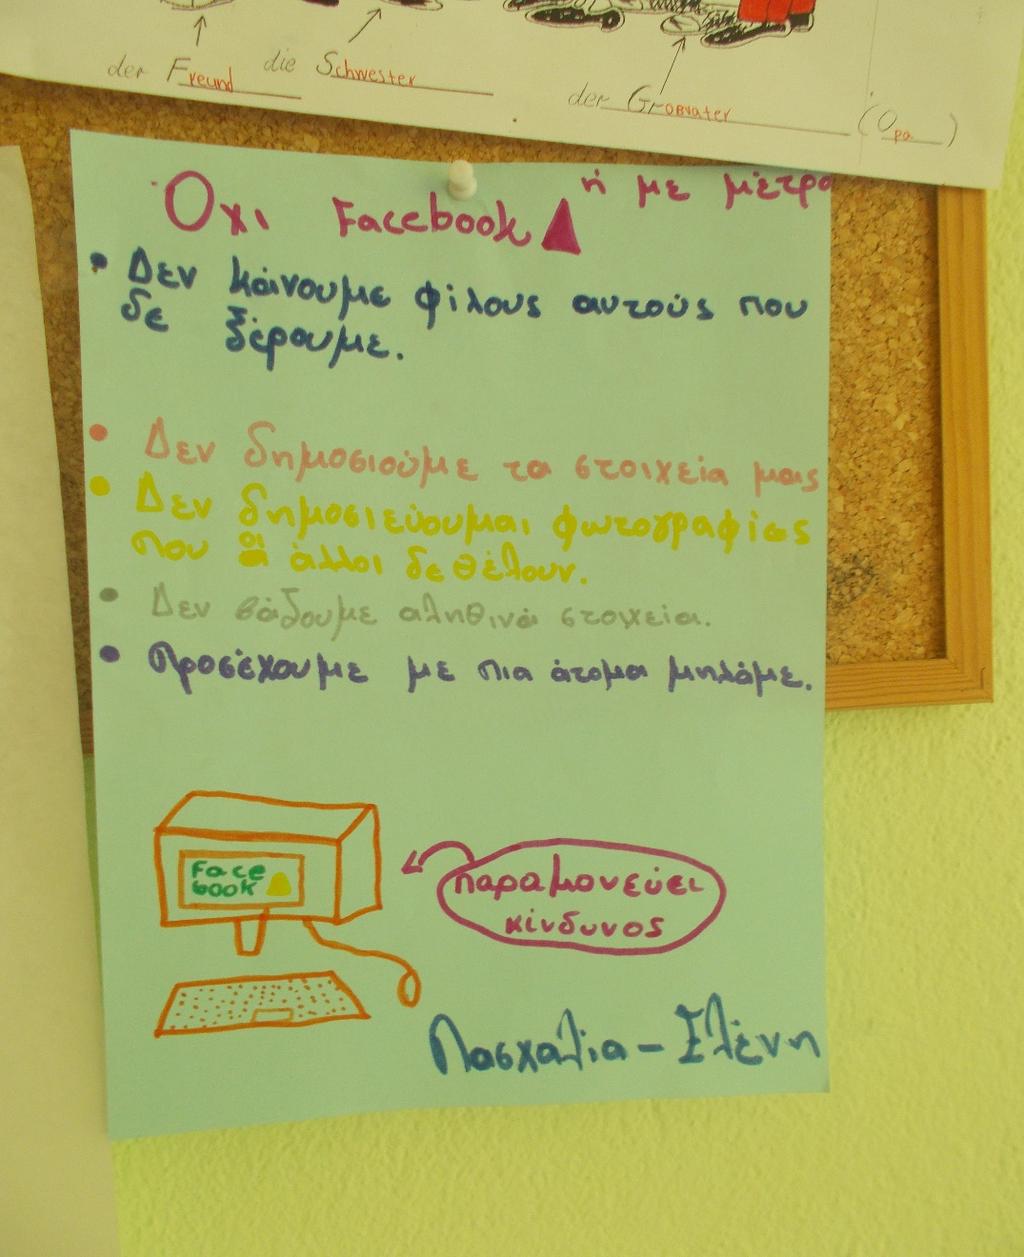 der Freund die Schwester
der Großvater (Opa)
Οχι Facebook ή με μέτρο
• Δεν κάνουμε φίλους αυτούς που
δε ξέρουμε.
• Δεν δημοσιούμε τα στοιχεία μας
• Δεν δημοσιεύουμαι φωτογραφίες
που οι άλλοι δε θέλουν.
• Δεν βάζουμε αληθινά στοιχεία.
• Προσέχουμε με πια άτομα μηλάμε.
Face
book
παραμονεύει
κίνδυνος
Πασχαλία - Ελένη